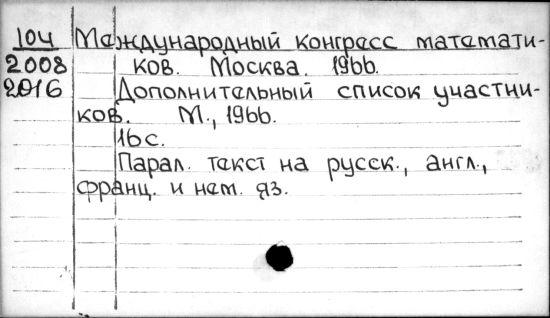 104 Международный конгресс математи-
2008 ков. Москва. 1966.
2016 Дополнительный список участни-
ков. М., 1966.
16 с.
Парал. текст на русск., англ.,
франц. и нем. яз.